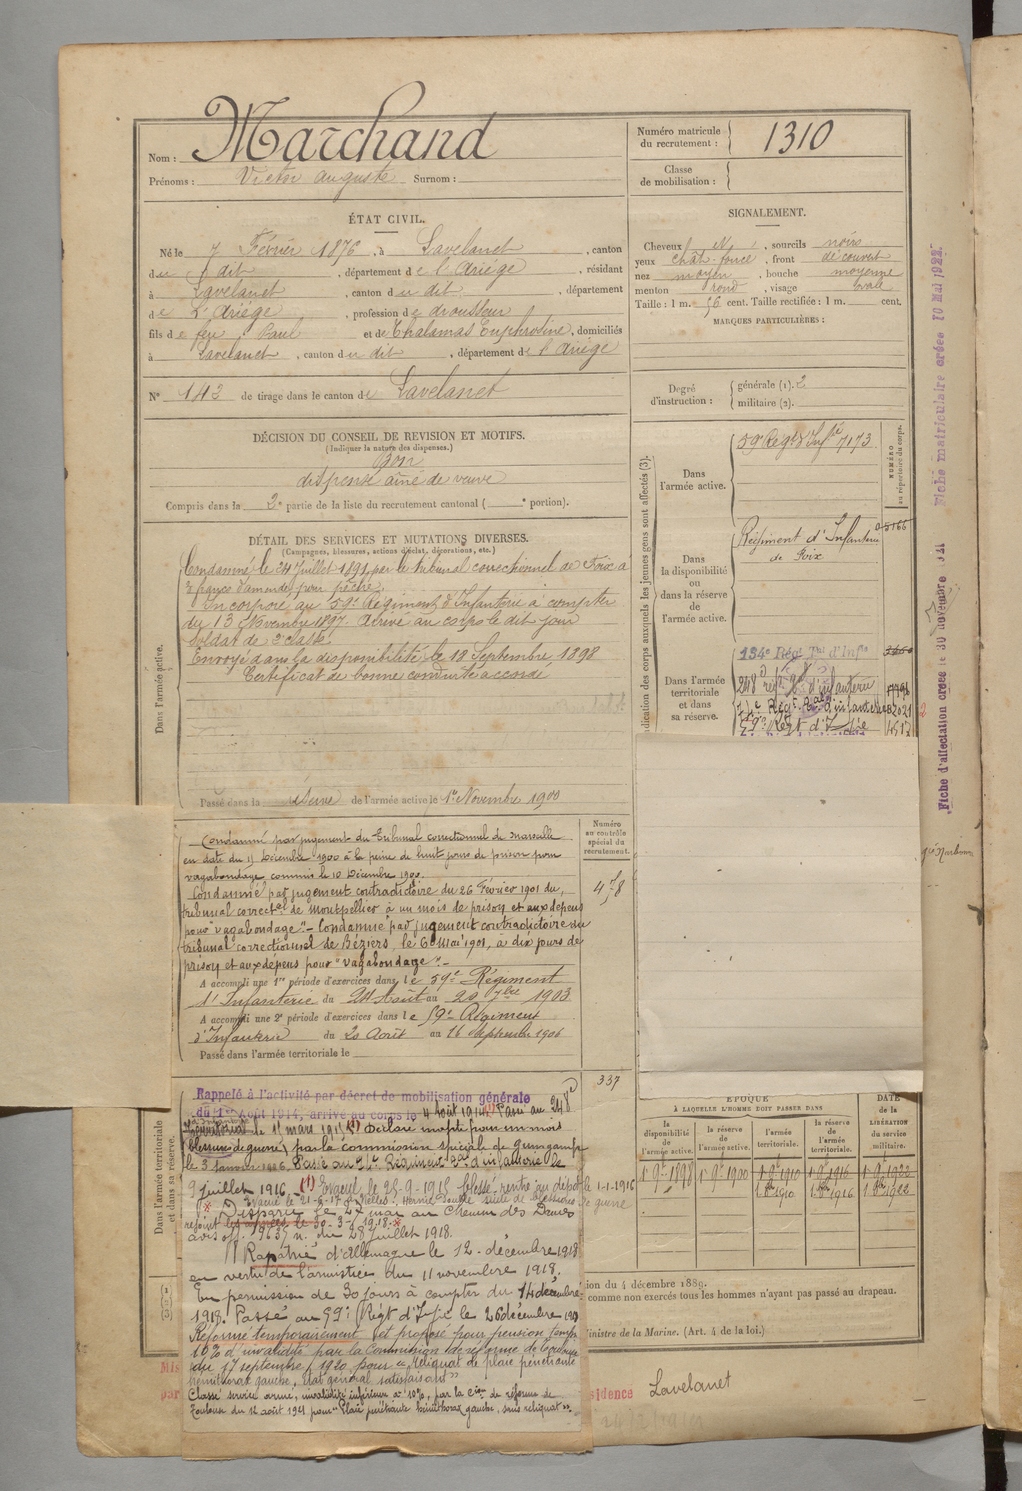 Nom : Marchand
Prénoms : Victor Auguste Surnom :
Numéro matricule du recrutement : 1310
Classe de mobilisation :
ÉTAT CIVIL.
Né le 7 Février 1876, à Lavelanet, canton
du dit, département de l'Ariège, résidant
à Lavelanet, canton du dit, département
de L'Ariège, profession de drousseur
fils de feu Paul et de Thalamas Euphrosine, domiciliés
à Lavelanet, canton du dit, département de l'Ariège
N° 143 de tirage dans le canton de Lavelanet
SIGNALEMENT.
Cheveux N, sourcils noirs
yeux chât. foncé, front découvert
nez moyen, bouche moyenne
menton rond, visage ovale
Taille : 1 m. 56 cent. Taille rectifiée : 1 m. cent.
MARQUES PARTICULIÈRES :
Degré d'instruction : générale (1). 2
militaire (2).
DÉCISION DU CONSEIL DE REVISION ET MOTIFS.
(Indiquer la nature des dispenses.)
Bon
dispensé aîné de veuve
Compris dans la 2e partie de la liste du recrutement cantonal ( e portion).
DÉTAIL DES SERVICES ET MUTATIONS DIVERSES.
(Campagnes, blessures, actions d'éclat, décorations, etc.)
Dans l'armée active.
Condamné le 24 Juillet 1891 par le tribunal correctionnel de Foix à
francs d'amende pour pêche.
Incorporé au 59e Régiment d'Infanterie à compter
du 13 Novembre 1897. Arrivé au corps le dit jour
Soldat de 2e classe.
Envoyé dans la disponibilité le 18 Septembre 1898
Certificat de bonne conduite accordé
Passé dans la réserve de l'armée active le 1er Novembre 1900
Indication des corps auxquels les jeunes gens sont affectés (3).
NUMÉRO au répertoire du corps.
Dans l'armée active.
59e Régt d'Infie 7173
Dans la disponibilité ou dans la réserve de l'armée active.
Régiment d'Infanterie de Foix
Dans l'armée territoriale et dans sa réserve.
134e Régt Tal d'Infie
248e régt d'infanterie
59e Régt d'Infie
Fiche d'affectation créée le 30 novembre 1921
Fiche matriculaire créée 10 Mai 1922
Numéro au contrôle spécial du recrutement.
Condamné par jugement du Tribunal correctionnel de Marseille
en date du 11 Décembre 1900 à la peine de huit jours de prison pour
vagabondage commis le 10 Décembre 1900.
Condamné par jugement contradictoire du 26 Février 1901 du
tribunal correctel de Montpellier à un mois de prison et aux dépens
pour "vagabondage". - Condamné par jugement contradictoire du
tribunal correctionnel de Béziers, le 6 Mai 1901, à dix jours de
prison et aux dépens pour "vagabondage". -
A accompli une 1re période d'exercices dans le 59e Régiment
d'Infanterie du 24 Août au 20 7bre 1903
A accompli une 2e période d'exercices dans le 59e Régiment
d'Infanterie du 20 Août au 16 Septembre 1906
Passé dans l'armée territoriale le
337
Dans l'armée territoriale et dans sa réserve.
Rappelé à l'activité par décret de mobilisation générale
du 1er Août 1914, arrivé au corps le 4 Août 1914. Passé au 248e
le 11 mars 1915 (1) Déclaré inapte pour un mois
(blessures de guerre) par la commission spéciale de Guingamp
le 3 Janvier 1916. Passé au Régiment d'infanterie le
9 juillet 1916 - (1) Evacué le 25-9-1915 blessé, rentré au dépôt le 1-1-1916
Disparu le 27 mai au Chemin des Dames
avis off. n. du 28 Juillet 1918.
Rapatrié d'Allemagne le 12 décembre 1918
en vertu de l'armistice du 11 novembre 1918.
En permission de 30 jours à compter du 14 décembre
1918. Passé au 59e Régt d'Infie le 26 décembre 1918
Réformé temporairement et proposé pour pension temp.
10% d'invalidité par la Commission de réforme de Toulouse
du 17 septembre 1920 pour "Reliquat de plaie pénétrante
hémithorax gauche, état général satisfaisant"
Classé service armé, invalidité inférieure à 10%, par la Cion de réforme de
Toulouse du 16 août 1921 pour "Plaie pénétrante hémithorax gauche, sans reliquat".
ÉPOQUE
À LAQUELLE L'HOMME DOIT PASSER DANS
la disponibilité de l'armée active.
la réserve de l'armée active.
l'armée territoriale.
la réserve de l'armée territoriale.
DATE de la LIBÉRATION du service militaire.
1er 9bre 1898 1er 9bre 1900 1er 9bre 1910 1er 9bre 1916 1er 9bre 1922
1er 8bre 1910 1er 8bre 1916 1er 8bre 1922
ion du 4 décembre 1889.
comme non exercés tous les hommes n'ayant pas passé au drapeau.
inistre de la Marine. (Art. 4 de la loi.)
Mis
par
sidence Lavelanet